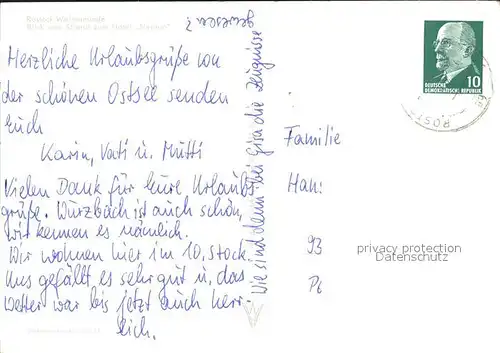 Rostock Warnemünde
Blick vom Strand zum Hotel "Neptun"
Herzliche Urlaubsgrüße von
der schönen Ostsee senden
Euch
Karin, Vati u. Mutti
Vielen Dank für Eure Urlaubs
grüße. Wurzbach ist auch schön,
wir kennen es nämlich.
Wir wohnen hier im 10. Stock.
Uns gefällt es sehr gut u. das
Wetter war bis jetzt auch herr-
lich.
Wie sind denn bei Gisa die Zeugnisse
gewesen?
DEUTSCHE
DEMOKRATISCHE REPUBLIK
10
ROST
Familie
Han
93
privacy protection
Datenschutz